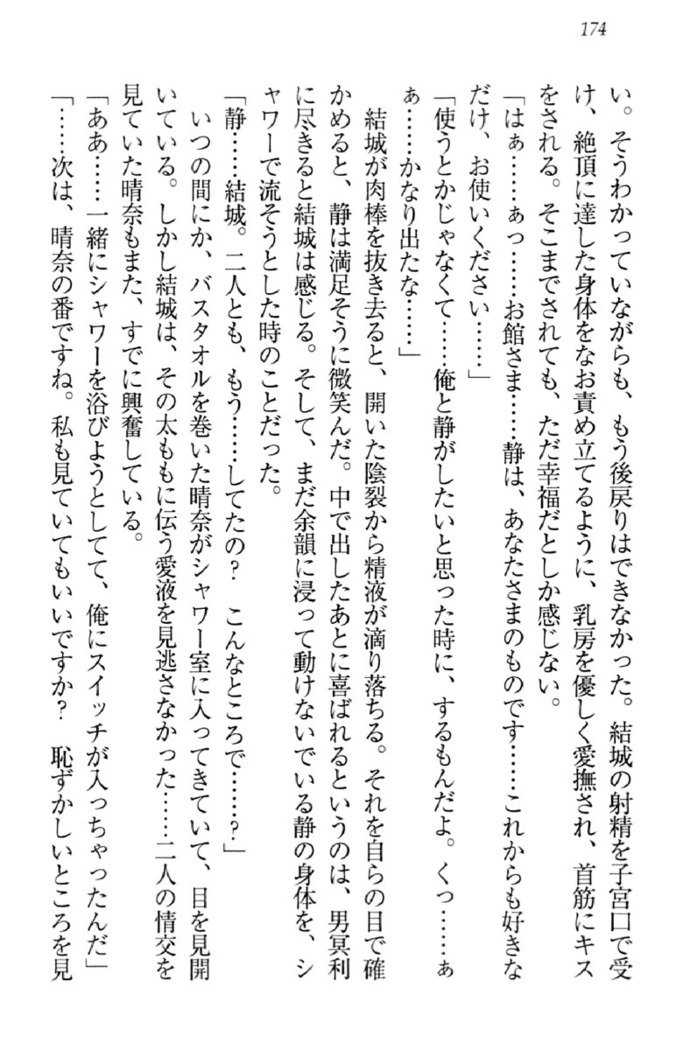 174
い。そうわかっていながらも、もう後戻りはできなかった。結城の射精を子宮口で受
け、絶頂に達した身体をなお責め立てるように、乳房を優しく愛撫され、首筋にキス
をされる。そこまでされても、ただ幸福だとしか感じない。
「はぁ……ぁっ……お館さま……静は、あなたさまのものです……これからも好きな
だけ、お使いください……」
「使うとかじゃなくて……俺と静がしたいと思った時に、するもんだよ。くっ……ぁ
ぁ……かなり出たな……」
　結城が肉棒を抜き去ると、開いた陰裂から精液が滴り落ちる。それを自らの目で確
かめると、静は満足そうに微笑んだ。中で出したあとに喜ばれるというのは、男冥利
に尽きると結城は感じる。そして、まだ余韻に浸って動けないでいる静の身体を、シ
ャワーで流そうとした時のことだった。
「静……結城。二人とも、もう……してたの？　こんなところで……？」
　いつの間にか、バスタオルを巻いた晴奈がシャワー室に入ってきていて、目を見開
いている。しかし結城は、その太ももに伝う愛液を見逃さなかった……二人の情交を
見ていた晴奈もまた、すでに興奮している。
「ああ……一緒にシャワーを浴びようとしてて、俺にスイッチが入っちゃったんだ」
「……次は、晴奈の番ですね。私も見ていてもいいですか？　恥ずかしいところを見